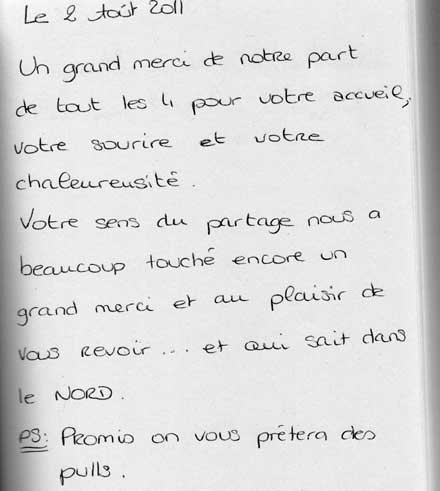 Le 2 Août 2011
Un grand merci de notre part
de tout les 4 pour votre accueil,
votre sourire et votre
chaleureusité.
Votre sens du partage nous a
beaucoup touché encore un
grand merci et au plaisir de
vous revoir ... et qui sait dans
le NORD.
PS: Promis on vous prétera des
pulls.